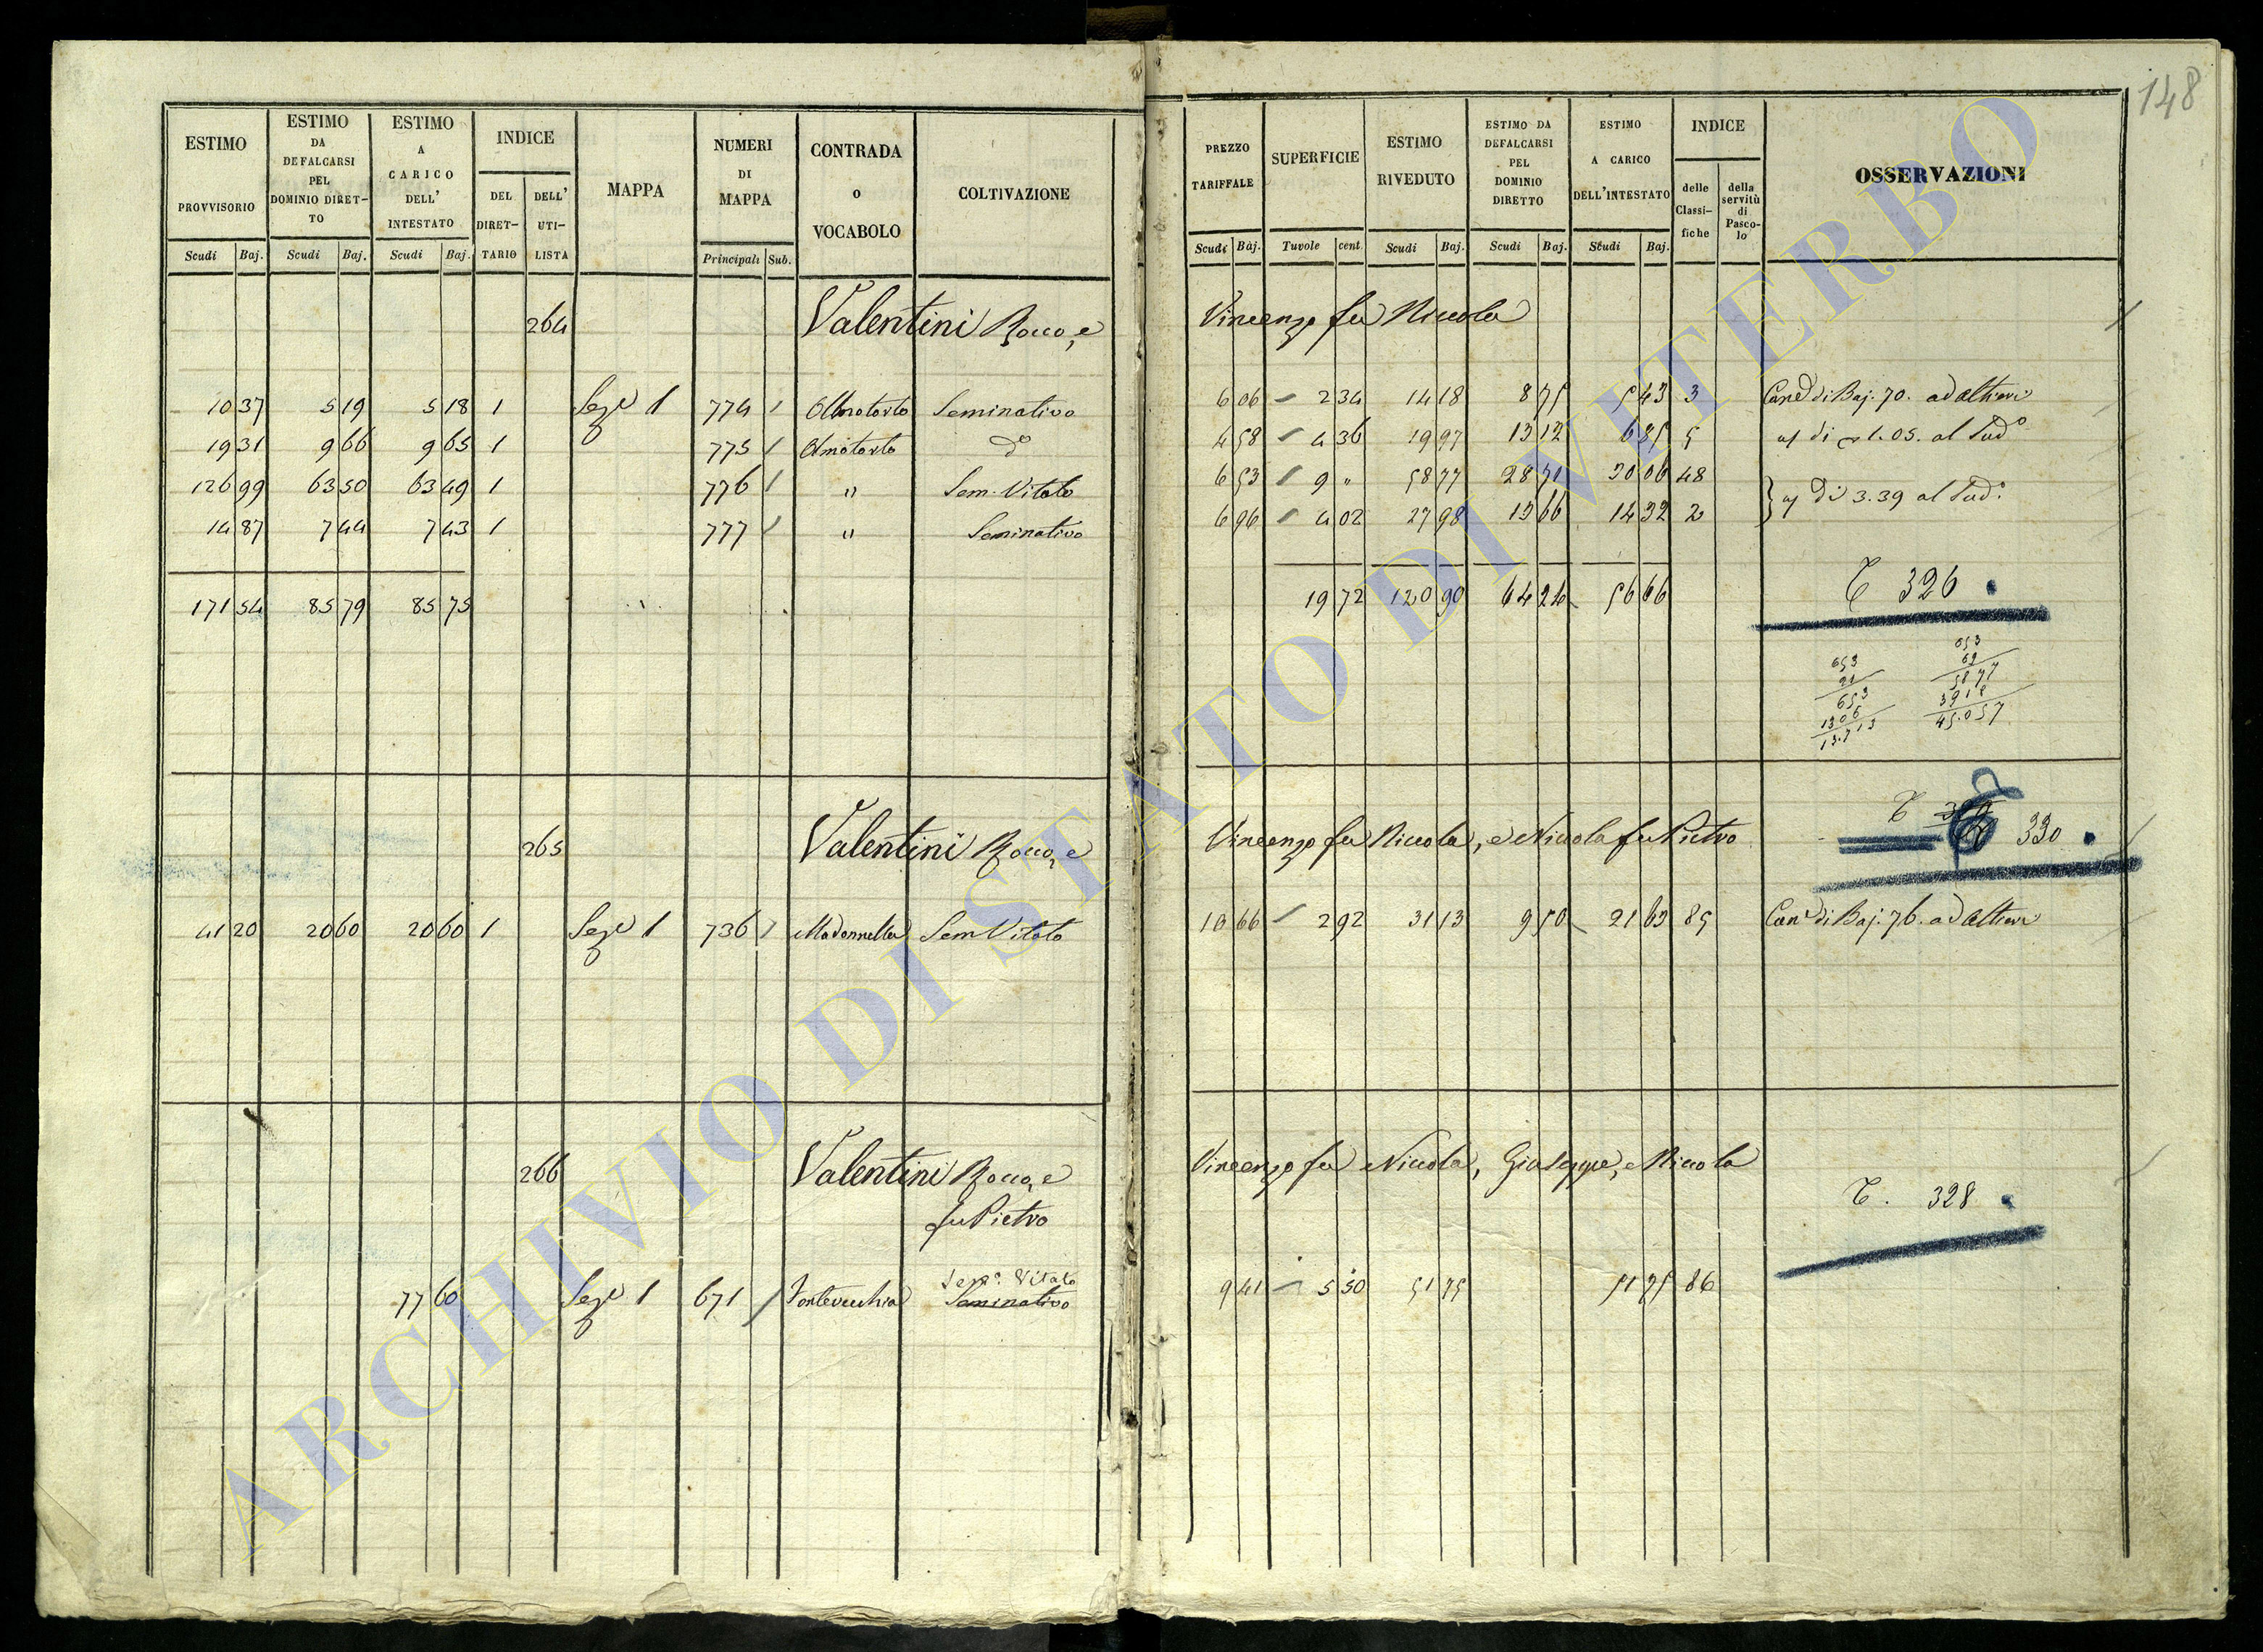 148
ESTIMO PROVVISORIO Scudi Baj.
ESTIMO DA DEFALCARSI PEL DOMINIO DIRETTO Scudi Baj.
ESTIMO A CARICO DELL' INTESTATO Scudi Baj.
INDICE DEL DIRETTARIO DELL' UTILISTA
MAPPA
NUMERI DI MAPPA Principali Sub.
CONTRADA o VOCABOLO
COLTIVAZIONE
PREZZO TARIFFALE Scudi Baj.
SUPERFICIE Tavole cent.
ESTIMO RIVEDUTO Scudi Baj.
ESTIMO DA DEFALCARSI PEL DOMINIO DIRETTO Scudi Baj.
ESTIMO A CARICO DELL'INTESTATO Scudi Baj.
INDICE delle Classifiche della servitù di Pascolo
OSSERVAZIONI
264 Valentini Rocco, e Vincenzo fu Niccola
10 37 5 19 5 18 1 Sez.e 1 774 / Olmotorto Seminativo 6 06 2 34 14 18 8 75 5 43 3 Can.e di Baj. 70. ad Altieri
19 31 9 66 9 65 1 775 / Olmotorto do 4 58 4 36 19 97 13 12 6 85 5 al Sud.o
126 99 63 50 63 49 1 776 / " Sem. Vitato 6 53 9 " 58 77 28 71 30 06 48
14 87 7 44 7 43 1 777 / " Seminativo 6 96 4 02 27 98 13 66 14 32 2 di 3.39 al Sud.o
171 54 85 79 85 75 19 72 120 90 64 24 56 66
T 326
653 653
21 69
653 5877
1306 3918
13.713 45.057
265 Valentini Rocco, e Vincenzo fu Niccola, e Niccola fu Pietro T 330
41 20 20 60 20 60 1 Sez.e 1 736 / Madonnella Sem Vitato 10 66 2 92 31 13 9 50 21 63 85 Can.e di Baj. 76. ad Altieri
266 Valentini Rocco, e Vincenzo fu Niccola, Giuseppe, e Niccola
fu Pietro T. 328
77 60 Sez.e 1 671 / Fontevecchia Sem.o Vitato Seminativo 9 41 5 50 51 75 51 75 86
ARCHIVIO DI STATO DI VITERBO